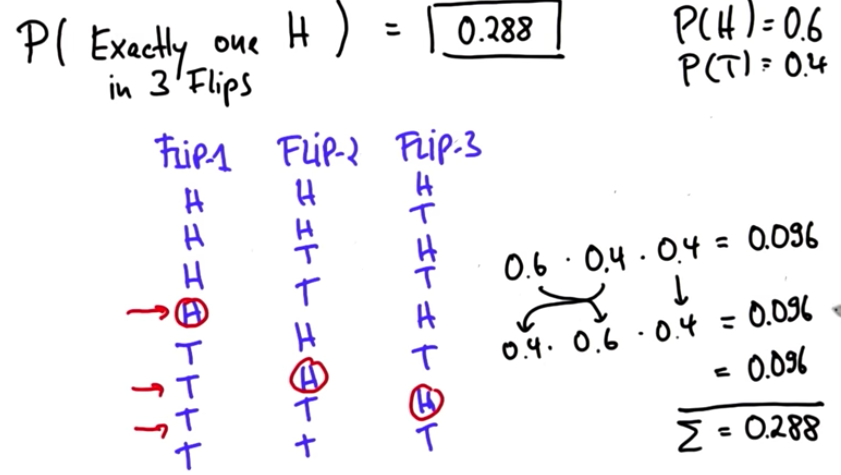 P( Exactly one H ) = 0.288
in 3 Flips
P(H) = 0.6
P(T) = 0.4
FLiP-1 FLiP-2 FLiP-3
H H H
H H T
H T H
H T T
T H H
T H T
T T H
T T T
0.6 · 0.4 · 0.4 = 0.096
0.4 · 0.6 · 0.4 = 0.096
= 0.096
Σ = 0.288